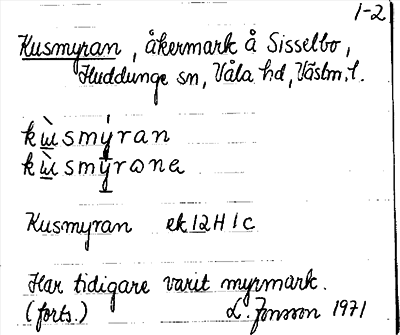 1-2
Kusmyran, åkermark å Sisselbo,
Huddunge sn, Våla hd, Västm. l.
kùsmy̍ran
kùsmy̍rɷna
Kusmyran ek 12H 1c
Har tidigare varit myrmark.
(forts.) L. Jonsson 1971